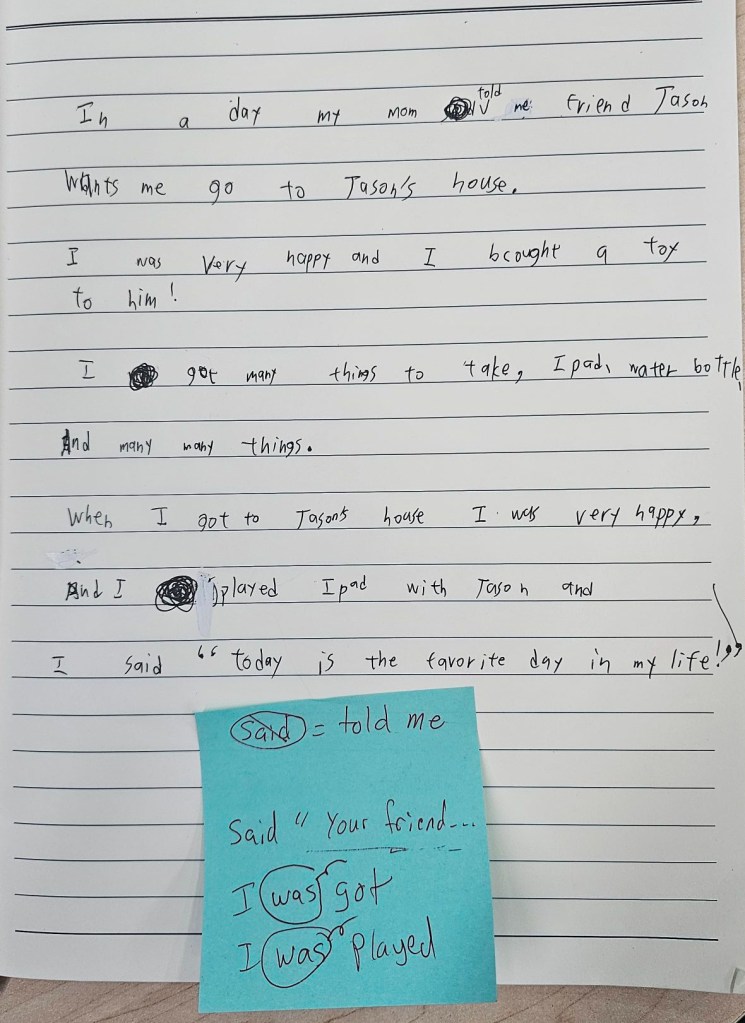 In a day my mom told me friend Jason
Wants me go to Jason's house.
I was very happy and I bcought a toy
to him!
I got many things to take, Ipad, water bottle,
And many many things.
When I got to Jason's house I was very happy,
And I played Ipad with Jason and
I said “today is the favorite day in my life!”
said = told me
said “ Your friend...
I was got
I was played